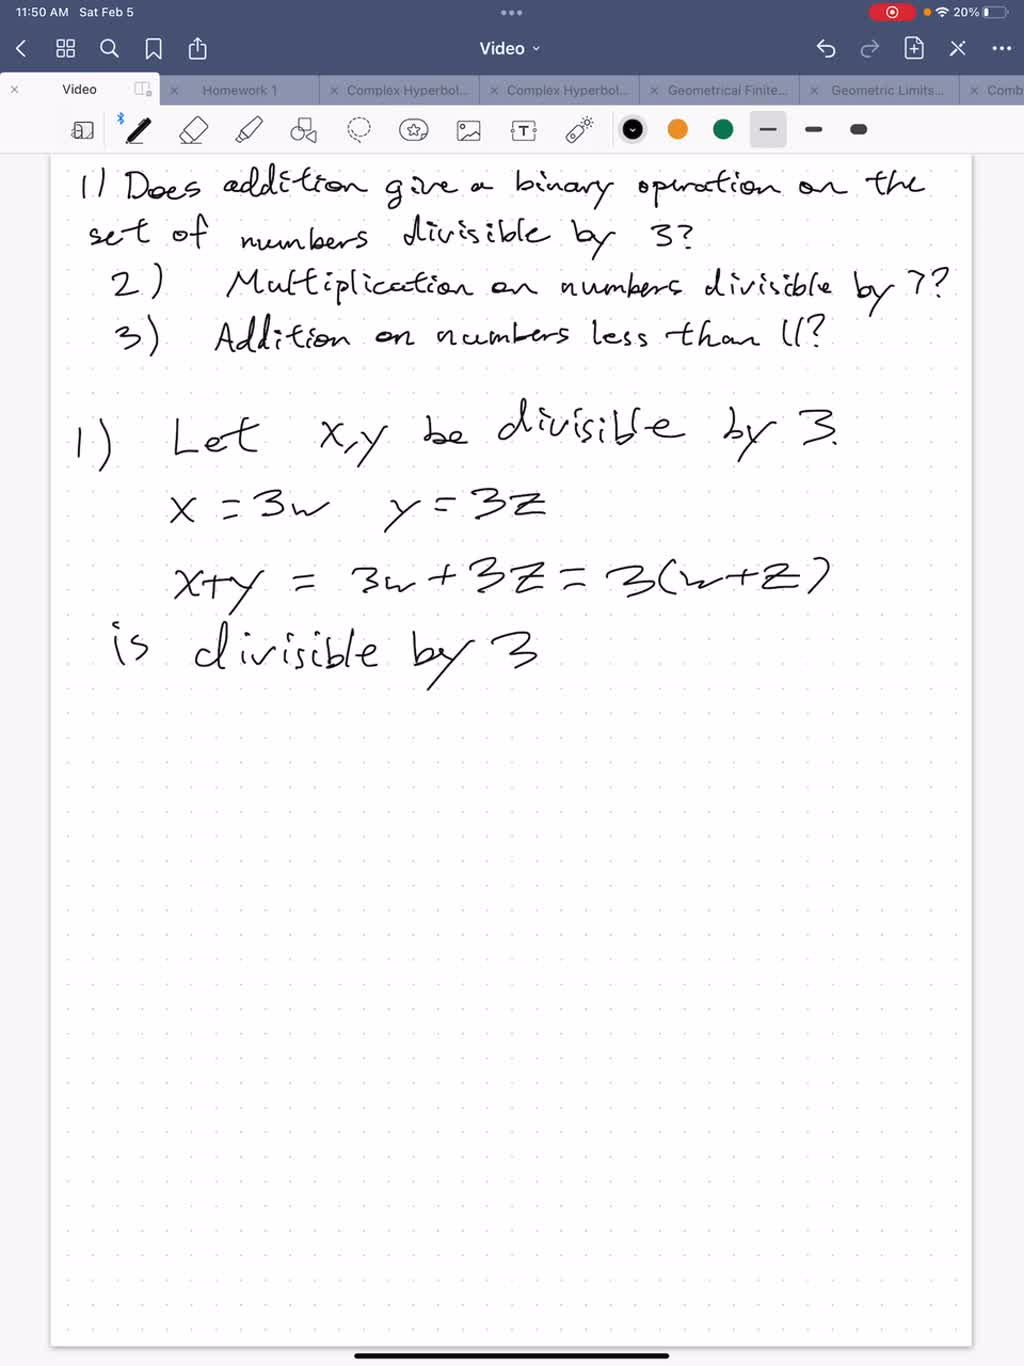 11:50 AM Sat Feb 5
20%
Video
Video Homework 1 Complex Hyperbol... Complex Hyperbol... Geometrical Finite... Geometric Limits... Comb
1) Does addition give a binary operation on the
set of numbers divisible by 3?
2) Multiplication on numbers divisible by 7?
3) Addition on numbers less than 11?
1) Let x,y be divisible by 3.
x = 3w y = 3z
x+y = 3w + 3z = 3(w+z)
is divisible by 3